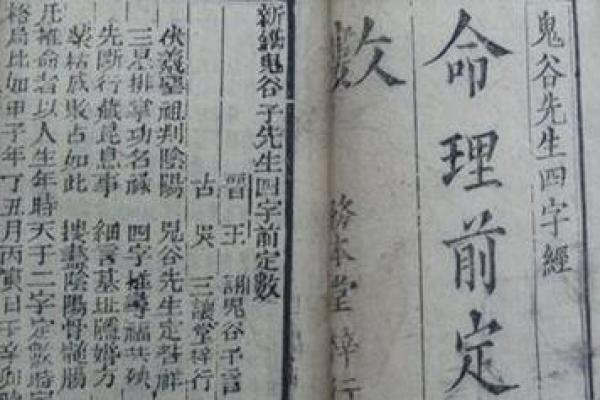 鬼谷先生四字經
命理前定
數
本堂梓行
新鐫鬼谷子先生四字前定數
晋 王 詡鬼谷子言
古 吳 三讓堂梓行
伏羲聖祖判陰陽 鬼谷先生定
三思排掌功名祿 四字推尋福共殃
先斷行藏息事 細言基址婚方
榮枯成敗占如此 搜盡陰陽骨髓腸
凡推命者以人生年時天干二字定數時定
格局比如甲子年丁丑月丙寅日辛卯時